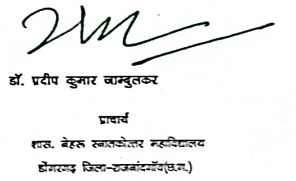 डॉ. प्रदीप कुमार जाम्बुलकर
प्राचार्य
शास. नेहरू स्नातकोत्तर महाविद्यालय
डोंगरगढ़ जिला-राजनांदगाँव(छ.ग.)